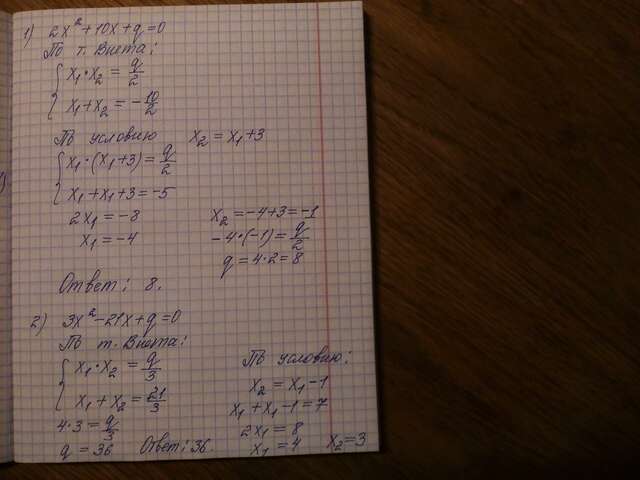 1) 2x² + 10x + q = 0
По т. Виета:
x₁·x₂ = q/2
x₁ + x₂ = -10/2
По условию x₂ = x₁ + 3
x₁·(x₁+3) = q/2
x₁ + x₁ + 3 = -5
2x₁ = -8
x₁ = -4
x₂ = -4 + 3 = -1
-4·(-1) = q/2
q = 4·2 = 8
Ответ: 8.
2) 3x² - 21x + q = 0
По т. Виета:
x₁·x₂ = q/3
x₁ + x₂ = 21/3
4·3 = q/3
q = 36 Ответ: 36.
По условию:
x₂ = x₁ - 1
x₁ + x₁ - 1 = 7
2x₁ = 8
x₁ = 4 x₂ = 3